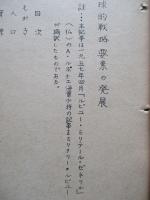 球的戦略要素の発展
註：本記事は一九五七年四月「ルビュー・ミリテール・ゼネラル」
(仏)のA・ルボナエ海軍少将の記事をミリタリー・レビュー
が摘訳したものである。
目次
まえがき
人口
資源